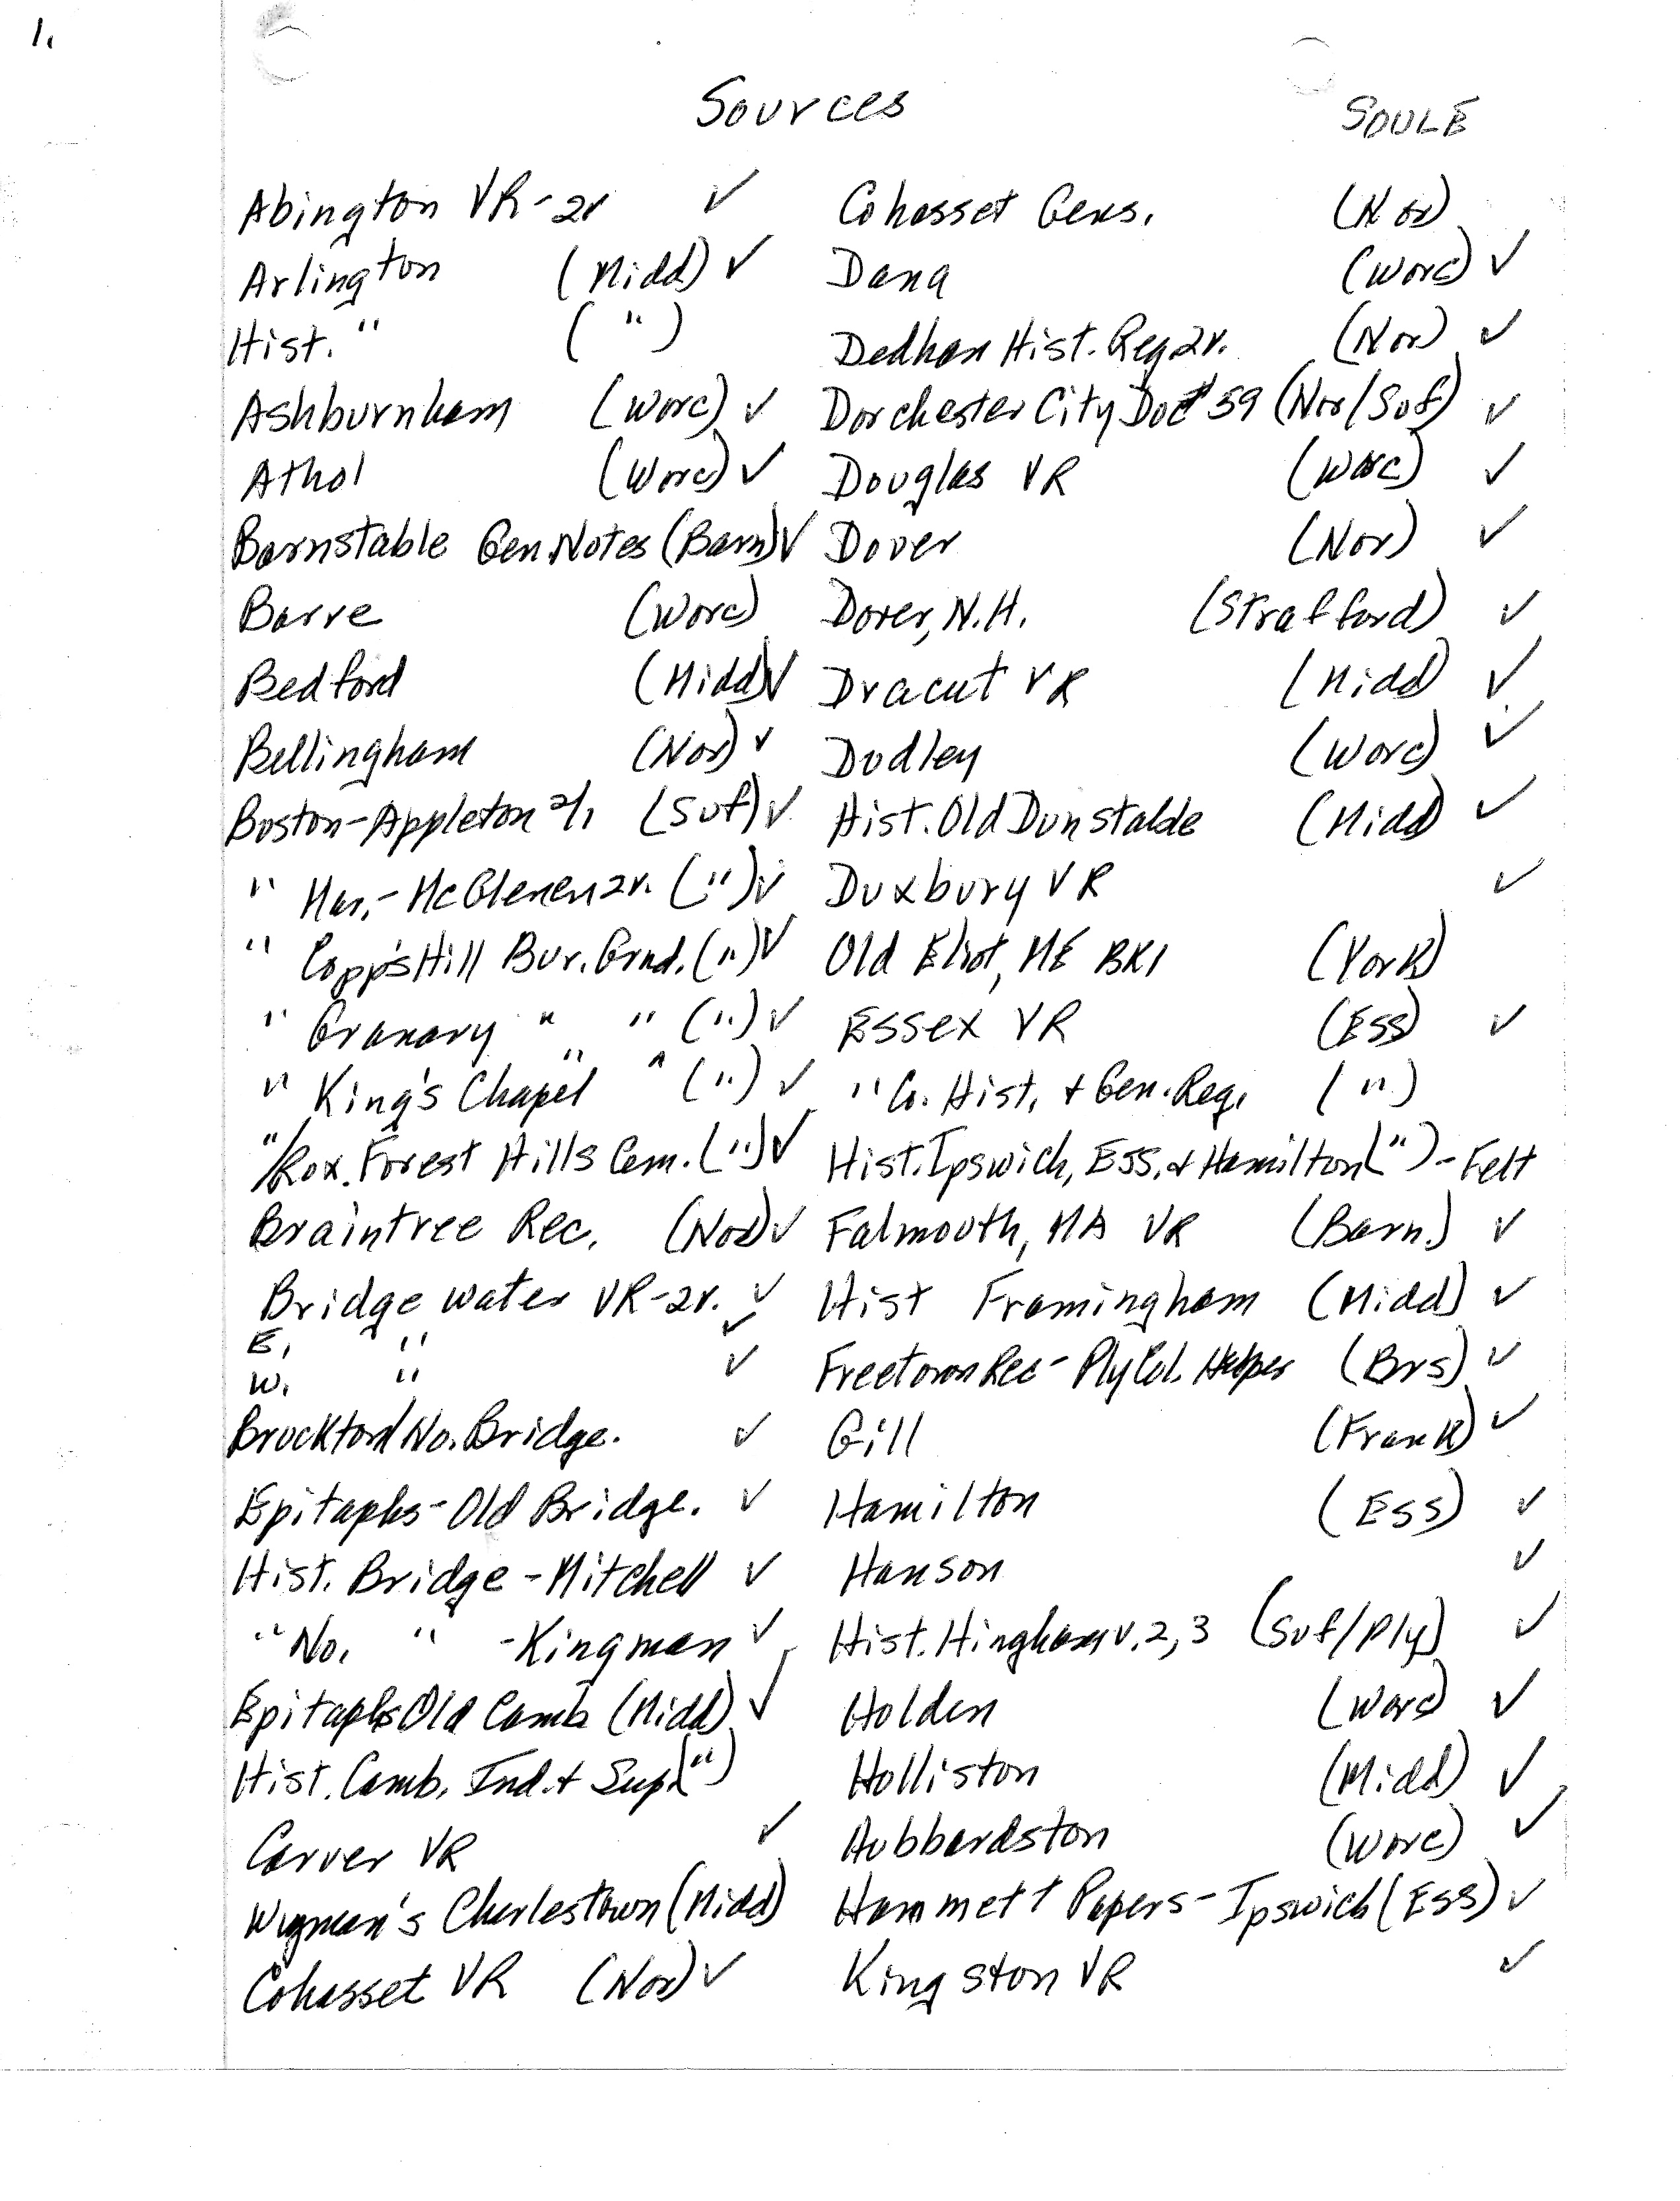 1.
Sources
SOULE
Abington VR-2v ✓
Arlington (Midd) ✓
Hist. " ( " )
Ashburnham (Worc) ✓
Athol (Worc) ✓
Barnstable Gen. Notes (Barn) ✓
Barre (Worc)
Bedford (Midd) ✓
Bellingham (Nor) ✓
Boston-Appleton 2/1 (Suf) ✓
" Mar.-McGlenen 2v. (") ✓
" Copp's Hill Bur. Grnd. (") ✓
" Granary " " (") ✓
" King's Chapel " " (") ✓
"/Rox. Forest Hills Cem. (") ✓
Braintree Rec. (Nor) ✓
Bridgewater VR-2v. ✓
E. " ✓
W. " ✓
Brockton/No. Bridge. ✓
Epitaphs-Old Bridge. ✓
Hist. Bridge-Mitchell ✓
" No. " -Kingman ✓
Epitaphs Old Camb (Midd) ✓
Hist. Camb. Ind. + Sup. (")
Carver VR ✓
Wyman's Charlestown (Midd)
Cohasset VR (Nor) ✓
Cohasset Gens. (Nor)
Dana (Worc) ✓
Dedham Hist. Reg 2v. (Nor) ✓
Dorchester City Doc # 59 (Nor/Suf) ✓
Douglas VR (Worc) ✓
Dover (Nor) ✓
Dover, N.H. (Strafford) ✓
Dracut VR (Midd) ✓
Dudley (Worc) ✓
Hist. Old Dunstable (Midd) ✓
Duxbury VR ✓
Old Eliot, ME BK1 (York)
Essex VR (Ess) ✓
" Co. Hist. + Gen. Reg. (")
Hist. Ipswich, Ess. + Hamilton (") - Felt
Falmouth, MA VR (Barn.) ✓
Hist Framingham (Midd) ✓
Freetown Rec-Ply Col. Helper (Brs) ✓
Gill (Frank) ✓
Hamilton (Ess) ✓
Hanson ✓
Hist. Hingham v. 2, 3 (Suf/Ply) ✓
Holden (Worc) ✓
Holliston (Midd) ✓
Hubbardston (Worc) ✓
Hammett Papers-Ipswich (Ess) ✓
Kingston VR ✓